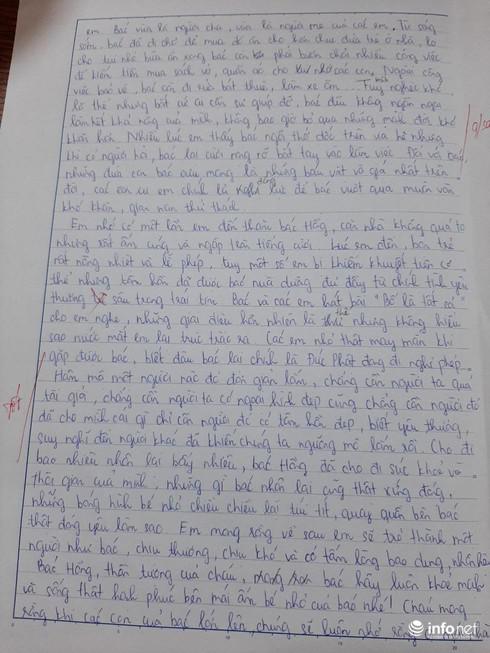 em. Bác vừa là người cha, vừa là người mẹ của các em. Từ sáng
sớm, bác đã đi chợ để mua đồ ăn cho hơn chục đứa trẻ ở nhà, lo
cho tụi nhỏ bữa ăn xong bác còn phải buôn chải nhiều công việc
để kiếm tiền mua sách vở, quần áo cho các con. Ngoài công
việc bảo vệ, bác còn đi rửa bát thuê, làm xe ôm. Tuy nghèo khó
là thế nhưng bất cứ ai cần sự giúp đỡ, bác đều không ngần ngại
làm hết khả năng của mình, không bao giờ bỏ qua những mảnh đời khó
khăn hơn. Nhiều lúc em thấy bác ngồi thở dốc trên vỉa hè nhưng
khi có người hỏi, bác lại cười rạng rỡ bắt tay vào làm việc. Đối với bác,
những đứa con bác cưu mang là những báu vật vô giá nhất trên
đời, các em ấy em chính là động lực để bác vượt qua muôn vàn
khó khăn, gian nan thử thách.
Em nhớ có một lần em đến thăm bác Hồng, căn nhà không quá to
nhưng rất ấm cúng và ngập tràn tiếng cười. Lúc em đến, bọn trẻ
rất nồng nhiệt và lễ phép, tuy một số em bị khiếm khuyết trên cơ
thể nhưng tâm hồn đã được bác nuôi dưỡng đủ đầy từ chính tình yêu
thương sâu trong trái tim. Bác và các em hát bài "Bố là tất cả"
cho em nghe, những giai điệu hồn nhiên là thế nhưng không hiểu
sao nước mắt em lại trực trào ra. Các em nhỏ thật may mắn khi
gặp được bác, biết đâu bác lại chính là Đức Phật đang đi nghỉ phép.
Hâm mộ một người nào đó đơn giản lắm, chẳng cần người ta quá
tài giỏi, chẳng cần người ta có ngoại hình đẹp cũng chẳng cần người đó
đã cho mình cái gì chỉ cần người đó có tâm hồn đẹp, biết yêu thương,
suy nghĩ đến người khác đã khiến chúng ta ngưỡng mộ lắm rồi. Cho đi
bao nhiêu nhận lại bấy nhiêu, bác Hồng đã cho đi sức khoẻ và
thời gian của mình, nhưng gì bác nhận lại cũng thật xứng đáng,
những bóng hình bé nhỏ chiều chiều lại tíu tít, quây quần bên bác
thật đáng yêu làm sao. Em mong rằng về sau em sẽ trở thành một
người như bác, chịu thương, chịu khó và có tấm lòng bao dung, nhân hậu.
Bác Hồng, thần tượng của cháu, mong bác hãy luôn khoẻ mạnh
và sống thật hạnh phúc bên mái ấm bé nhỏ của bác nhé! Cháu mong
rằng khi các con của bác lớn lên, chúng sẽ luôn nhớ rằng
infonet